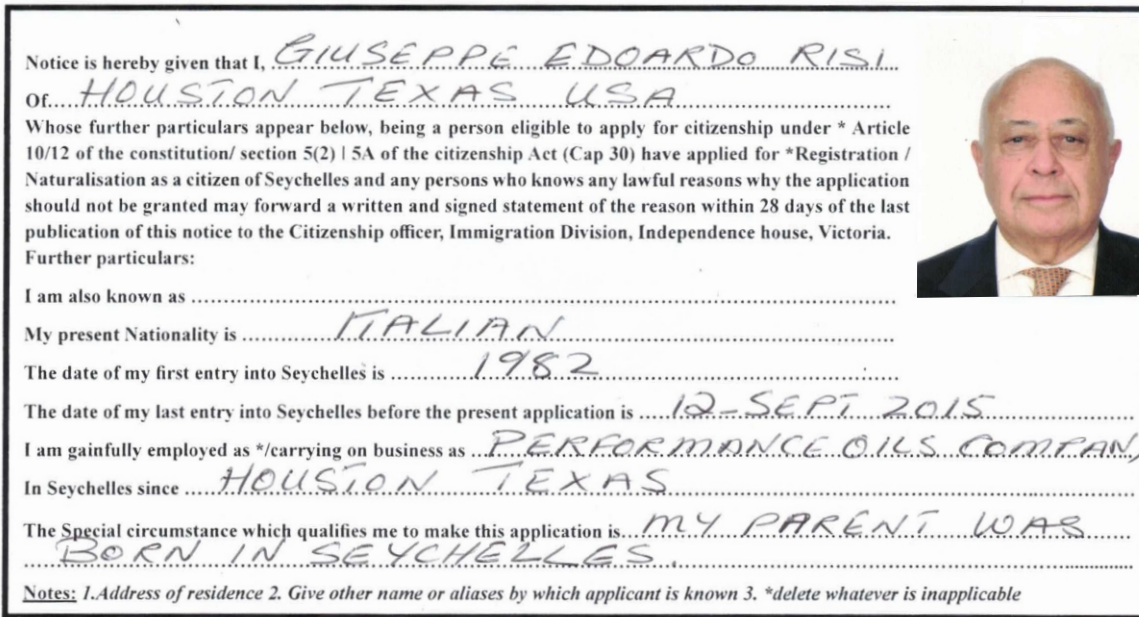 Notice is hereby given that I, GIUSEPPE EDOARDO RISI
Of.... HOUSTON TEXAS USA
Whose further particulars appear below, being a person eligible to apply for citizenship under * Article
10/12 of the constitution/ section 5(2) | 5A of the citizenship Act (Cap 30) have applied for *Registration /
Naturalisation as a citizen of Seychelles and any persons who knows any lawful reasons why the application
should not be granted may forward a written and signed statement of the reason within 28 days of the last
publication of this notice to the Citizenship officer, Immigration Division, Independence house, Victoria.
Further particulars:
I am also known as ....
My present Nationality is .... ITALIAN
The date of my first entry into Seychelles is .... 1982
The date of my last entry into Seychelles before the present application is .... 12-SEPT 2015
I am gainfully employed as */carrying on business as .... PERFORMANCE OILS COMPAN
In Seychelles since .... HOUSTON TEXAS
The Special circumstance which qualifies me to make this application is.... MY PARENT WAS
BORN IN SEYCHELLES.
Notes: 1.Address of residence 2. Give other name or aliases by which applicant is known 3. *delete whatever is inapplicable